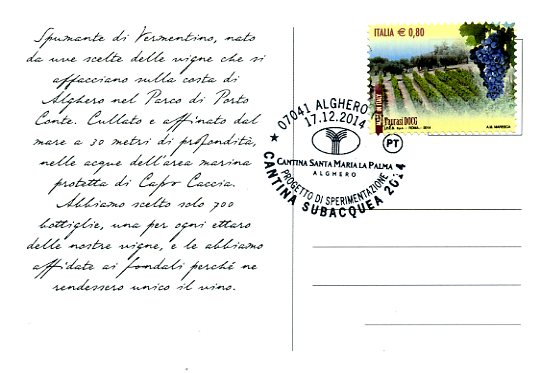 Spumante di Vermentino, nato
da uve scelte delle vigne che si
affacciano sulla costa di
Alghero nel Parco di Porto
Conte. Cullato e affinato dal
mare a 30 metri di profondità,
nelle acque dell'area marina
protetta di Capo Caccia.
Abbiamo scelto solo 700
bottiglie, una per ogni ettaro
delle nostre vigne, e le abbiamo
affidate ai fondali perché ne
rendessero unico il vino.
ITALIA € 0,80
Taurasi DOCG
I.P.Z.S. S.p.A. - ROMA - 2014
A.M. MARESCA
07041 ALGHERO
17.12.2014
PT
CANTINA SANTA MARIA LA PALMA
ALGHERO
PROGETTO DI SPERIMENTAZIONE
CANTINA SUBACQUEA 2014